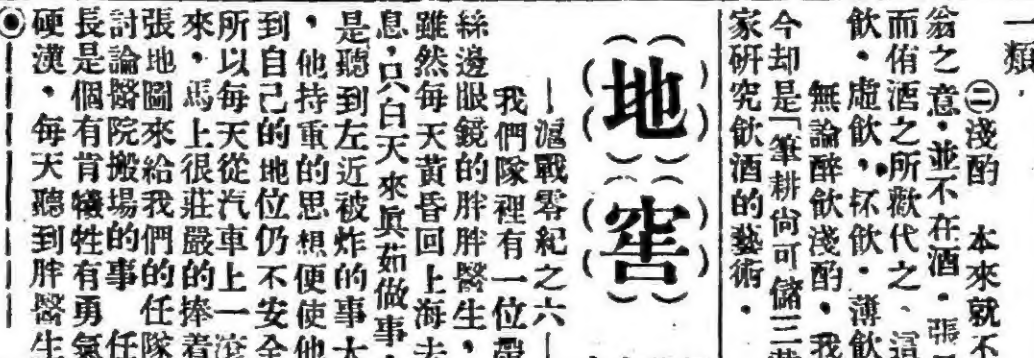 一類，
㊁淺酌　本來就不
翁之意·並不在酒·張
而侑酒之所歡代之、這
飲·虛飲，·杯飲·薄飲
無論醉飲淺酌·我
今却是「筆耕尚可儲三
家研究飲酒的藝術·
（地）（窖）
—滬戰零紀之六—
我們隊裡有一位帶
絲邊眼鏡的胖胖醫生，
雖然每天黃昏回上海去
息，只白天來眞茹做事，
是聽到左近被炸的事大
，他持重的思想便使他
到自己的地位仍不安全
所以每天從汽車上一滾
來，馬上很莊嚴的捧着
張地圖來給我們的任隊
討論醫院搬場的事　任
長是個有肯犧牲有勇氣
硬漢，每天聽到胖醫生